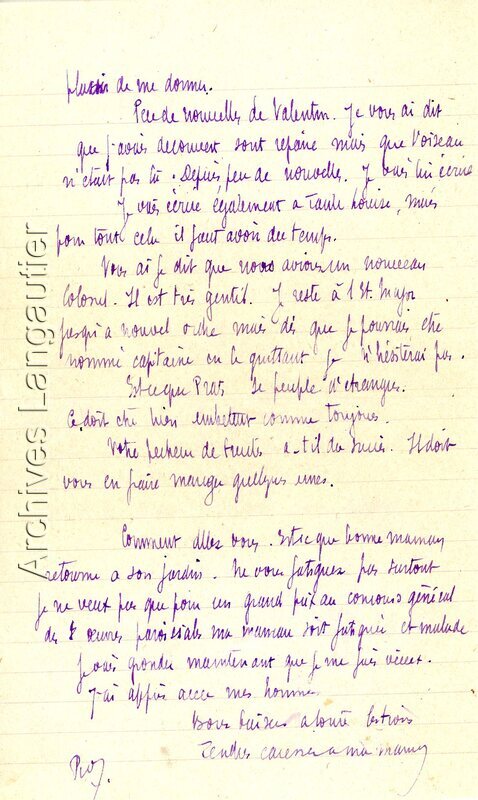 plaisir de me donner.
Peu de nouvelles de Valentin. Je vous ai dit
que j'avais decouvert sont repaire mais que l'oiseau
n'était pas là. Depuis, peu de nouvelle. Je vais lui écrire
Je vais écrire également a tante Louise, mais
pour tout cela il faut avoir du temps.
Vous ai je dit que nous avions un nouveau
Colonel. Il est très gentil. Je reste à l'Et. Major
jusqu'a nouvel ordre mais dès que je pourrais etre
nommé capitaine en le quittant je n'hésiterai pas.
Est ce que Prats se peuple d'etranges.
Ce doit etre bien embettant comme toujours.
Votre pecheur de truites a t il du succès. Il doit
vous en faire manger quelques unes.
Comment allez vous. Est ce que bonne maman
retourne a son jardin. Ne vous fatiguez pas surtout
je ne veut pas que pour un grand prix au concours général
des oeuvres paroissiales ma maman soit fatiguée et malade
Je vais gronder maintenant que je me fais vieux.
J'ai appris avec mes hommes
Bons baisers a toute les trois
Tendres caresses a ma maman
Archives Langautier